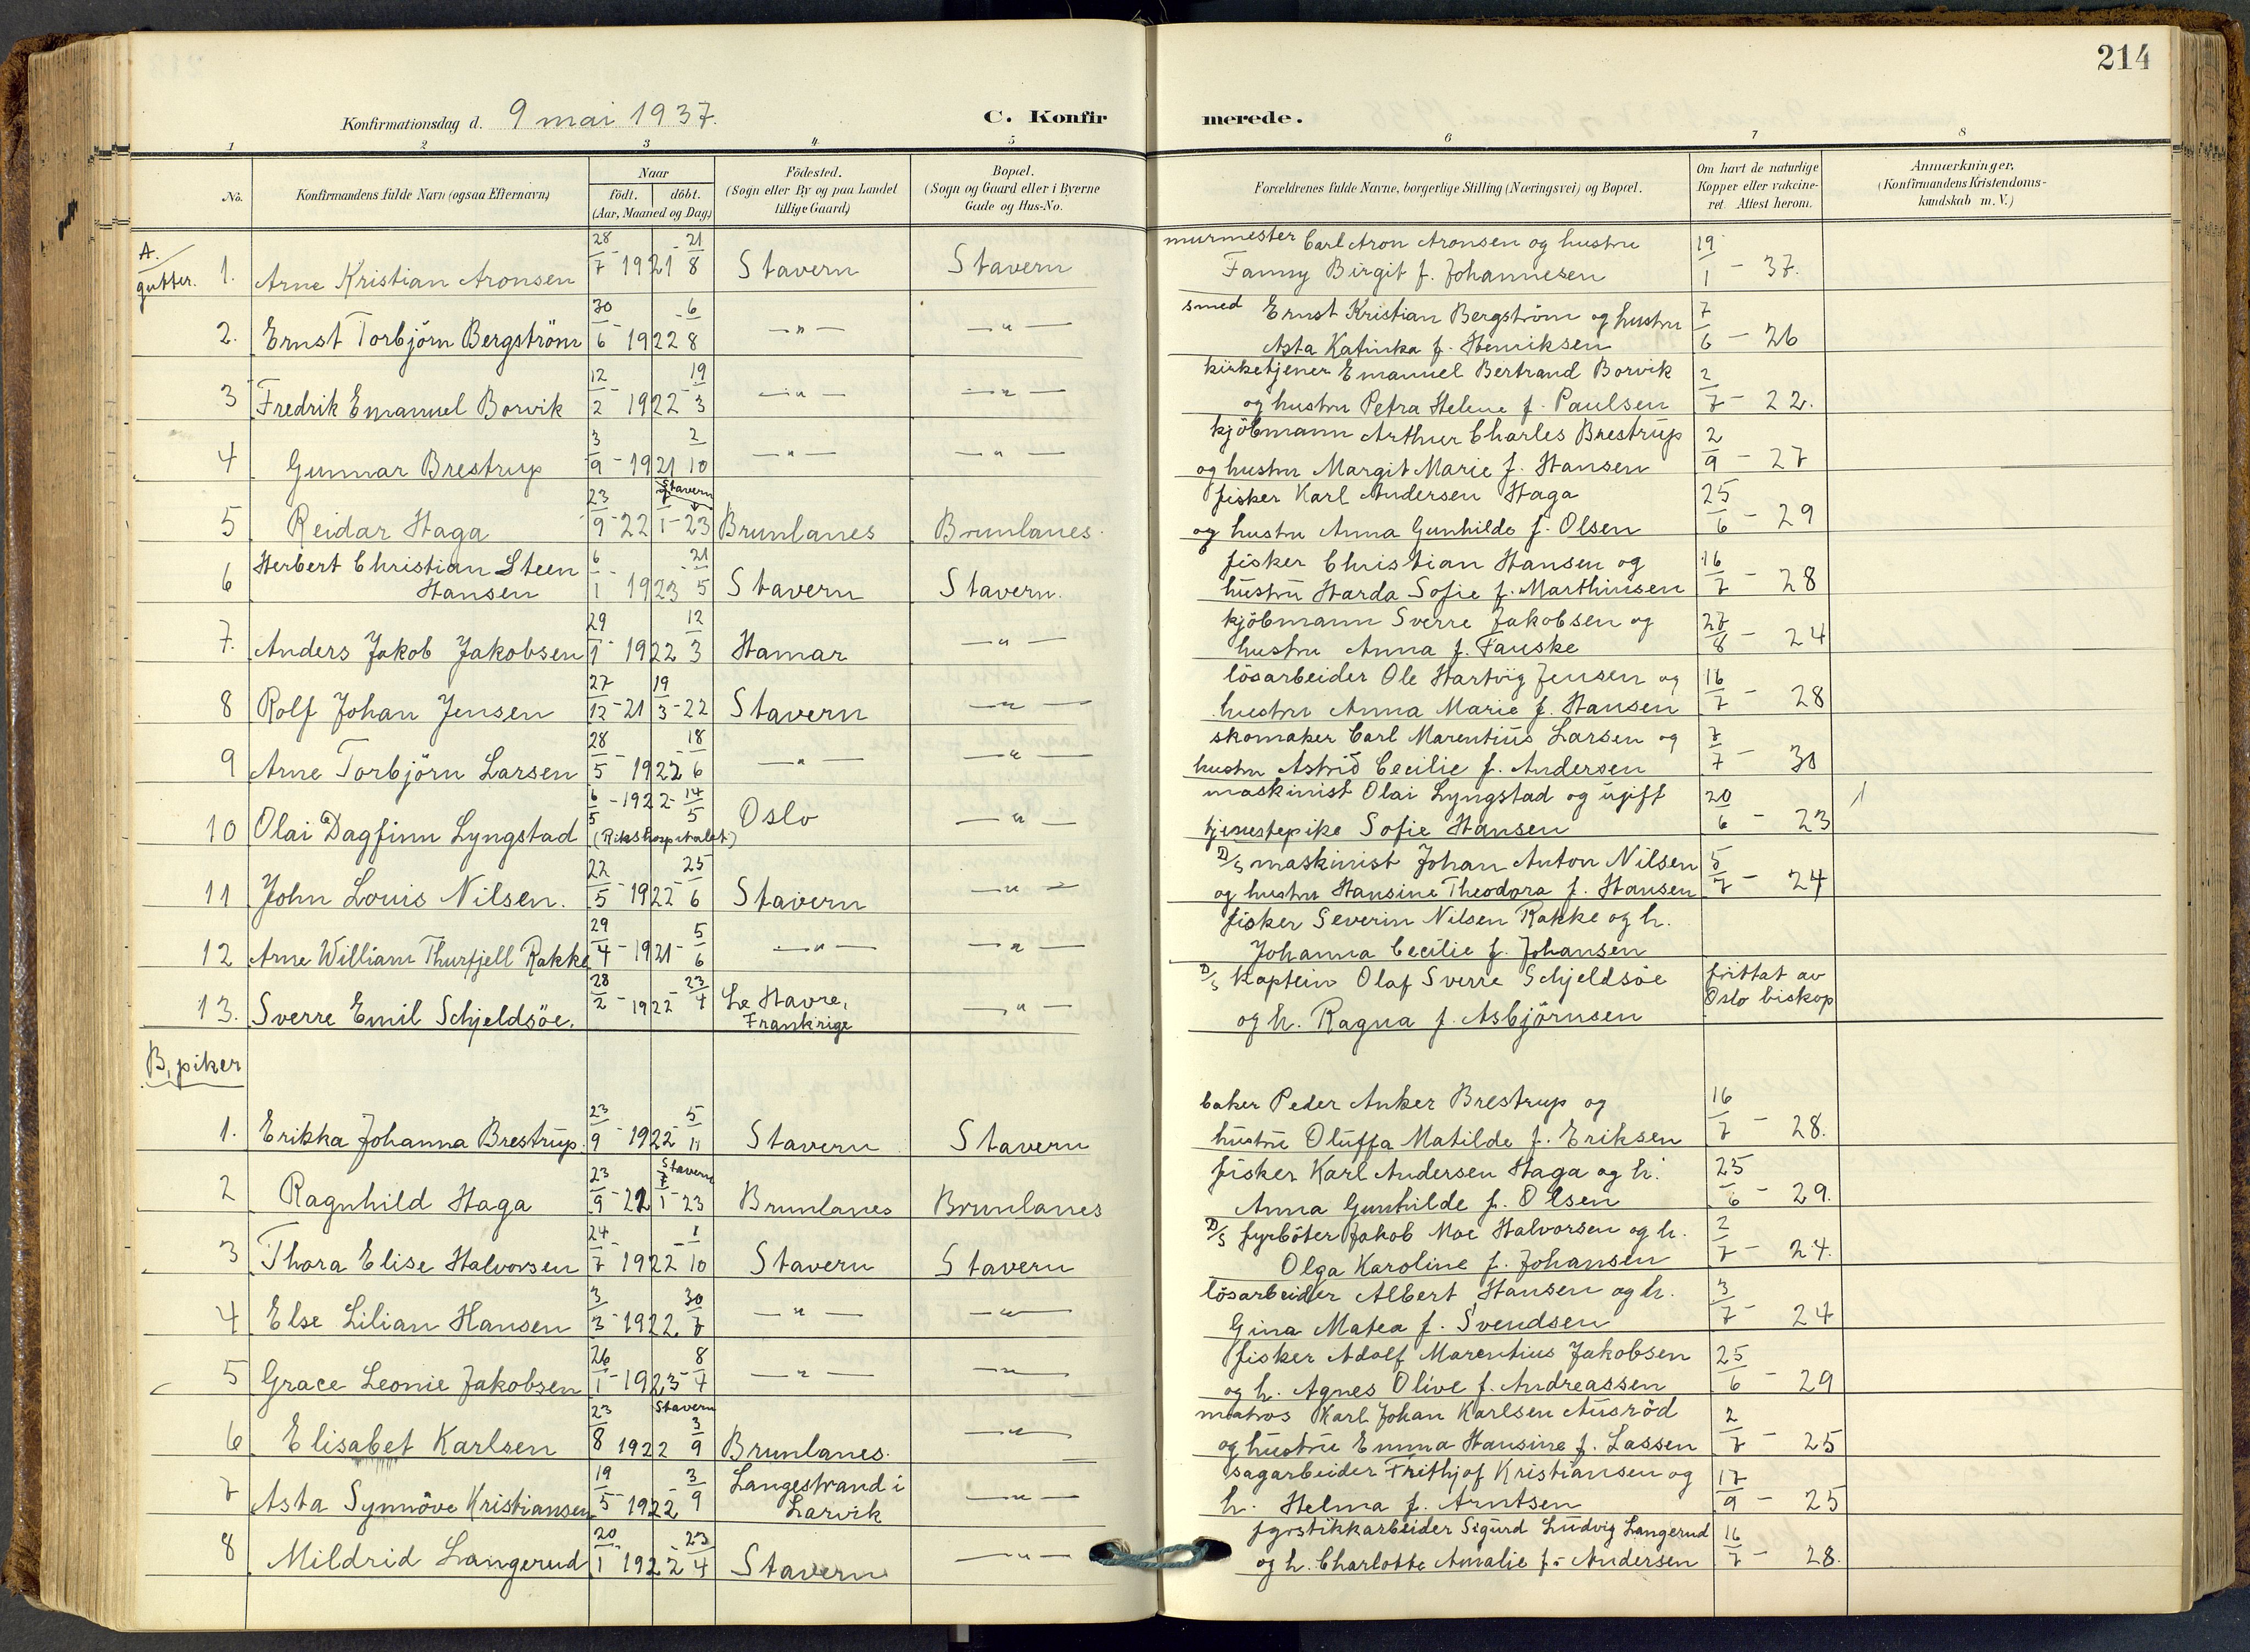 214
Konfirmationsdag d. 9 mai 1937.
C. Konfirmerede.
1 2 3 4 5 6 7 8
No.
Konfirmandens fulde Navn (ogsaa Efternavn)
Naar
födt. döbt.
(Aar, Maaned og Dag)
Födested.
(Sogn eller By og paa Landet
tillige Gaard)
Bopæl.
(Sogn og Gaard eller i Byerne
Gade og Hus-No.
Forældrenes fulde Navne, borgerlige Stilling (Næringsvei) og Bopæl.
Om havt de naturlige
Kopper eller vakcine-
ret. Attest herom.
Anmærkninger.
(Konfirmandens Kristendoms-
kundskab m. V.)
A.
gutter.
1. Arne Kristian Aronsen 28/7 - 1921 - 21/8 Stavern Stavern
murmester Carl Aron Aronsen og hustru
Fanny Birgit f. Johannesen 19/1 - 37.
2. Ernst Torbjörn Bergström 30/6 - 1922 - 6/8 — " — — " —
smed Ernst Kristian Bergström og hustru
Asta Katinka f. Henriksen 7/6 - 26
3 Fredrik Emanuel Borvik 12/2 - 1922 - 19/3 — " — — " —
kirketjener Emanuel Bertrand Borvik
og hustru Petra Helene f. Paulsen 2/7 - 22.
4 Gunnar Brestrup 3/9 - 1921 2/10 — " — — " —
kjöbmann Arthur Charles Brestrup
og hustru Margit Marie f. Hansen 2/9 - 27
Stavern
5 Reidar Haga 23/9 - 22 7/1 - 23 Brunlanes Brunlanes.
fisker Karl Andersen Haga
og hustru Anna Gunhilde f. Olsen 25/6 - 29
6 Herbert Christian Steen
Hansen 6/1 - 1923 - 21/5 Stavern Stavern.
fisker Christian Hansen og
hustru Harda Sofie f. Marthinsen 16/7 - 28
7. Anders Jakob Jakobsen 29/1 - 1922 12/3 Hamar — " —
kjöbmann Sverre Jakobsen og
hustru Anna f. Fauske 27/8 - 24
8 Rolf Johan Jensen 27/12 - 21 19/3 - 22 Stavern — " —
lösarbeider Ole Hartvig Jensen og
hustru Anna Marie f. Hansen 16/7 - 28
9 Arne Torbjörn Larsen 28/5 - 1922 - 18/6 — " — — " —
skomaker Carl Marentius Larsen og
hustru Astrid Cecilie f. Andersen 7/7 - 30
10 Olai Dagfinn Lyngstad 6/5 - 1922 - 14/5 Oslo — " —
(Rikshospitalet)
maskinist Olai Lyngstad og ugift
tjenestepike Sofie Hansen 20/6 - 23
11 John Louis Nilsen. 22/5 - 1922 - 25/6 Stavern — " —
D/s maskinist Johan Anton Nilsen
og hustru Hansine Theodora f. Hansen 5/7 - 24
12 Arne William Thurfjell Rakke 29/4 - 1921 - 5/6 — " — — " —
fisker Severin Nilsen Rakke og h.
Johanna Cecilie f. Johansen
13. Sverre Emil Schjeldsöe. 28/2 - 1922 - 23/4 Le Havre,
Frankrige — " —
D/s kaptein Olaf Sverre Schjeldsöe
og h. Ragna f. Asbjörnsen
frittat av
Oslo biskop
B, piker
1. Erikka Johanna Brestrup. 23/9 - 1922 - 5/11 Stavern Stavern
baker Peder Anker Brestrup og
hustru Oluffa Matilde f. Eriksen 16/7 - 28.
Stavern
2 Ragnhild Haga 23/9 - 22 7/1 - 23 Brunlanes Brunlanes
fisker Karl Andersen Haga og h.
Anna Gunhilde f. Olsen 25/6 - 29.
3 Thora Elise Halvorsen 24/7 - 1922 - 1/10 Stavern Stavern
D/s fyrböter Jakob Moe Halvorsen og h.
Olga Karoline f. Johansen 2/7 - 24.
4 Else Lilian Hansen 3/3 - 1922 30/7 — " — — " —
lösarbeider Albert Hansen og h.
Gina Matea f. Svendsen 3/7 - 24
5 Grace Leonie Jakobsen 26/1 - 1923 8/4 — " — — " —
fisker Adolf Marentius Jakobsen
og h. Agnes Olive f. Andreassen 25/6 - 29
Stavern
6 Elisabet Karlsen 23/8 1922 3/9 Brunlanes. — " —
matros Karl Johan Karlsen Ausröd
og hustru Emma Hansine f. Lassen 2/7 - 25
7 Asta Synnöve Kristiansen 19/5 - 1922 - 3/9 Langestrand i
Larvik — " —
sagarbeider Frithjof Kristiansen og
h. Helma f. Arntsen 17/9 - 25
8 Mildrid Langerud 20/1 - 1922 - 23/4 Stavern — " —
fyrstikkarbeider Sigurd Ludvig Langerud
og h. Charlotte Amalie f. Andersen 16/7 - 28.